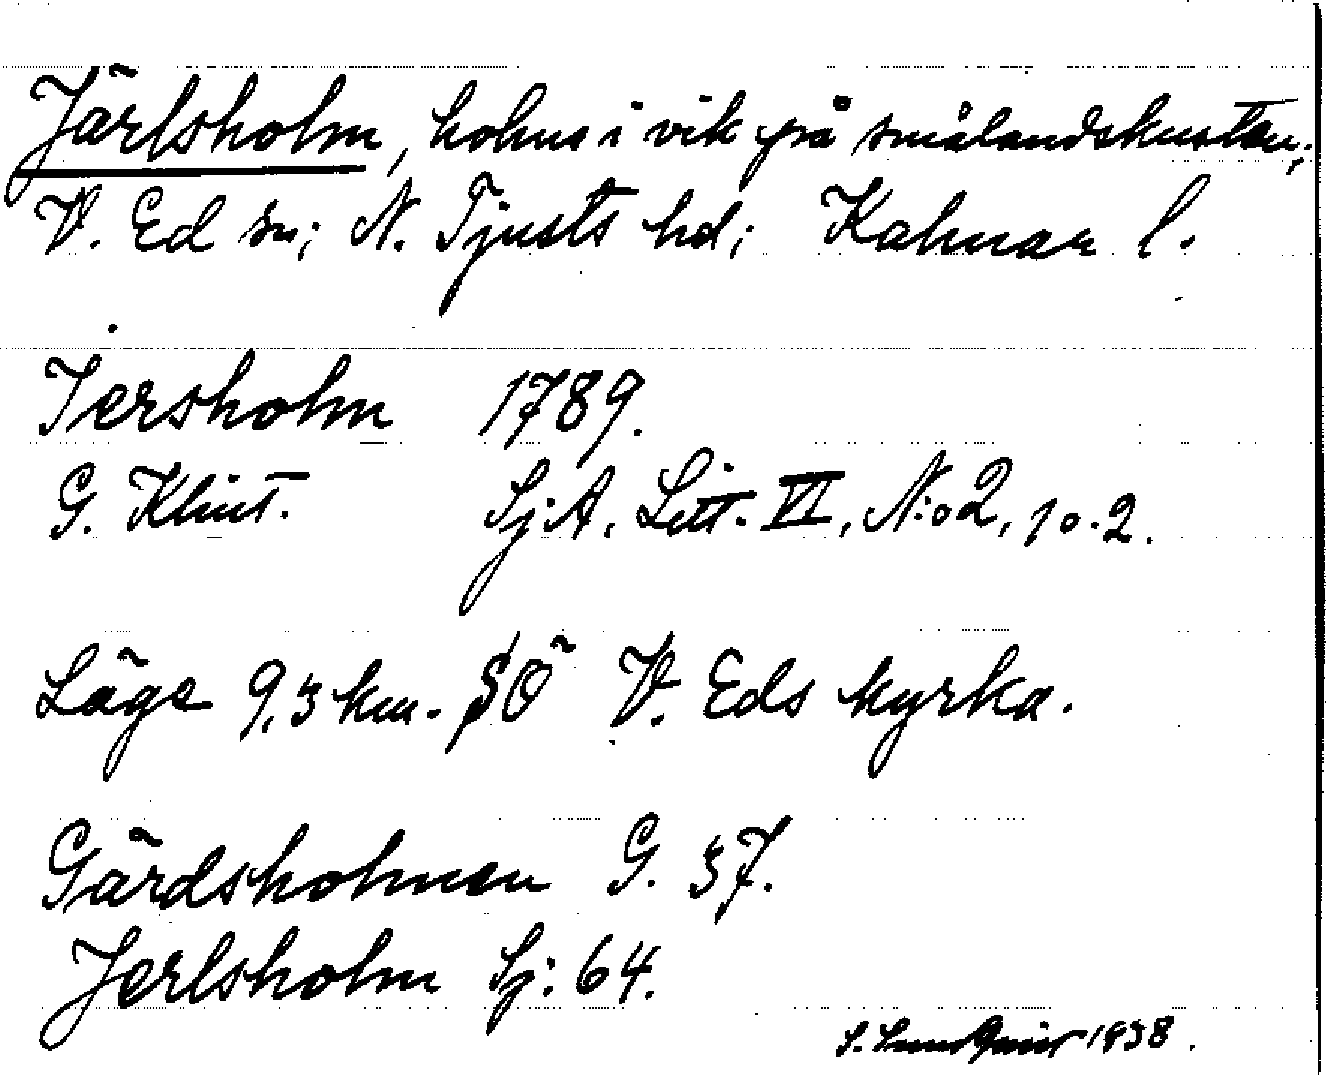 Järlsholm, holme i vik på smålandskusten;
V. Ed sn; N. Tjusts hd; Kalmar l.
Jersholm 1789.
G. Klint. SjA, Litt. VI, N:o 2, 10.2.
Läge 9,3 km. SÖ V. Eds kyrka.
Gärdsholmen G. 37.
Jerlsholm Sj: 64.
S. Sundqvist 1938.